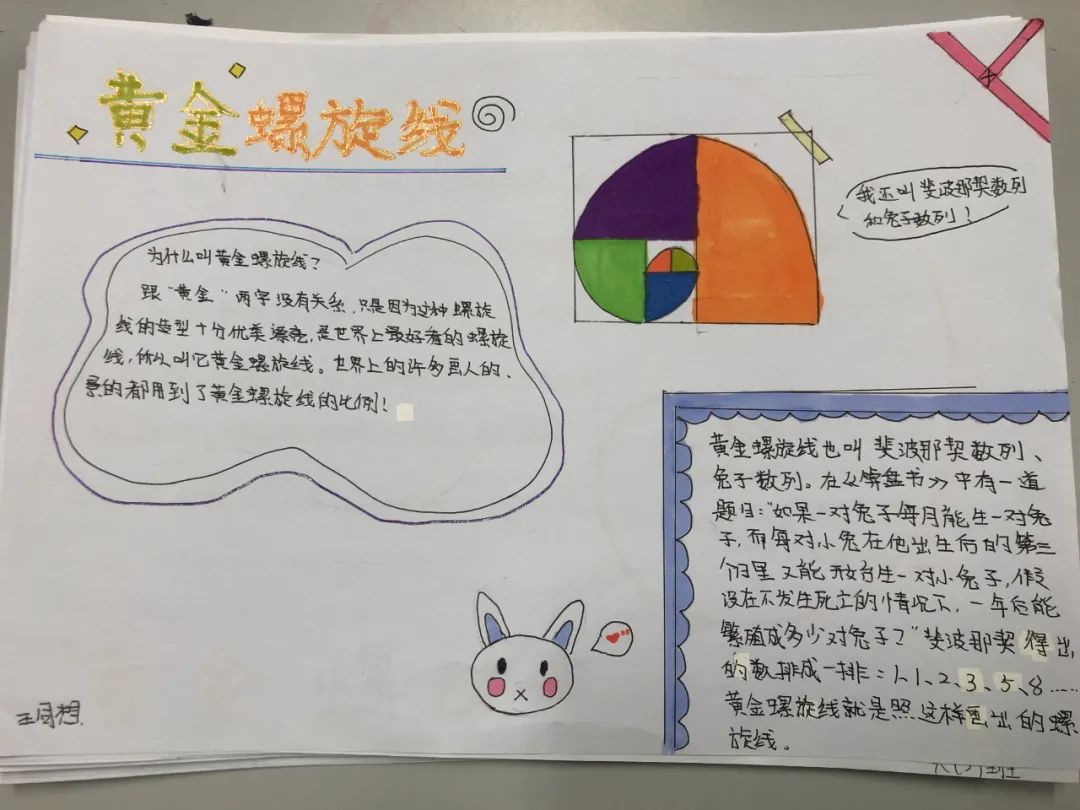 黄金螺旋线
为什么叫黄金螺旋线？
跟"黄金"两字没有关系，只是因为这种螺旋
线的造型十分优美漂亮，是世界上最好看的螺旋
线，所以叫它黄金螺旋线。世界上的许多画人的、
景的都用到了黄金螺旋线的比例！
我还叫斐波那契数列
和兔子数列！
黄金螺旋线也叫斐波那契数列、
兔子数列。在《算盘书》中有一道
题目："如果一对兔子每月能生一对兔
子，而每对小兔在他出生后的第三
个月里又能开始生一对小兔子，假
设在不发生死亡的情况下，一年后能
繁殖成多少对兔子？"斐波那契得出
的数排成一排：1、1、2、3、5、8……
黄金螺旋线就是照这样画出的螺
旋线。